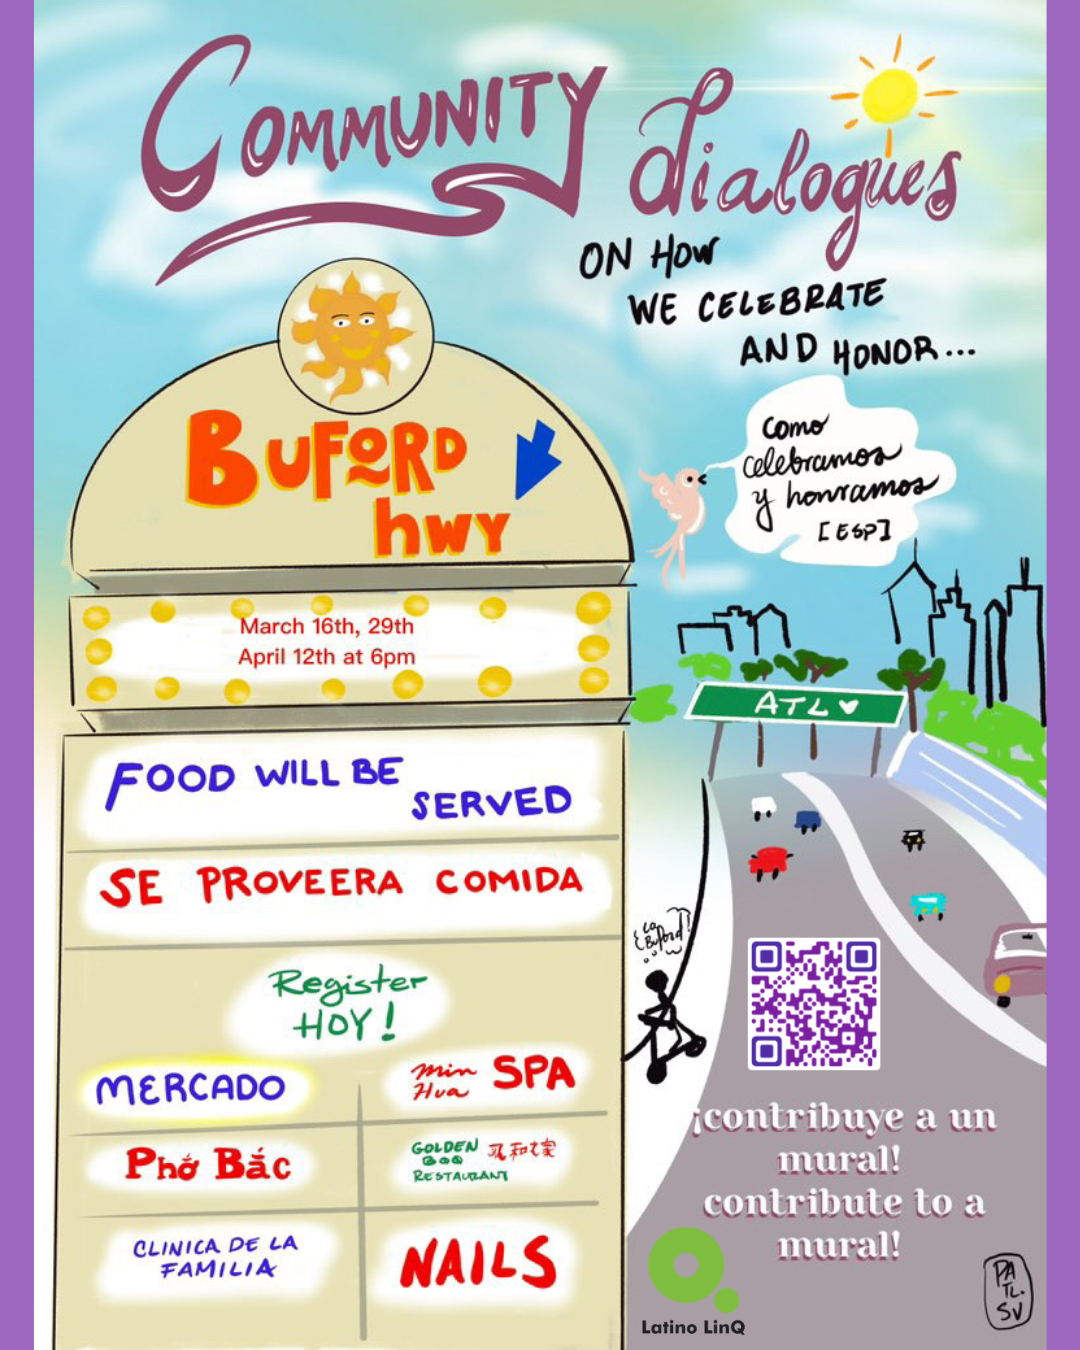 COMMUNITY dialogues
ON HOW
WE CELEBRATE
AND HONOR...
Como
celebramos
y honramos
[ESP]
BUFORD
hwy
March 16th, 29th
April 12th at 6pm
FOOD WILL BE
SERVED
SE PROVEERA COMIDA
Register
HOY!
MERCADO
Min
Hua
SPA
Phở Bắc
GOLDEN
BBQ
RESTAURANT
CLINICA DE LA
FAMILIA
NAILS
ATL
¡La
Buford!
¡contribuye a un
mural!
contribute to a
mural!
Latino LinQ
PA
TL.
SV